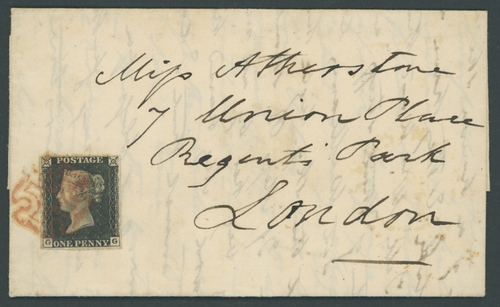 Miss Atherstone
7 Union Place
Regent's Park
London
POSTAGE
ONE PENNY
G G